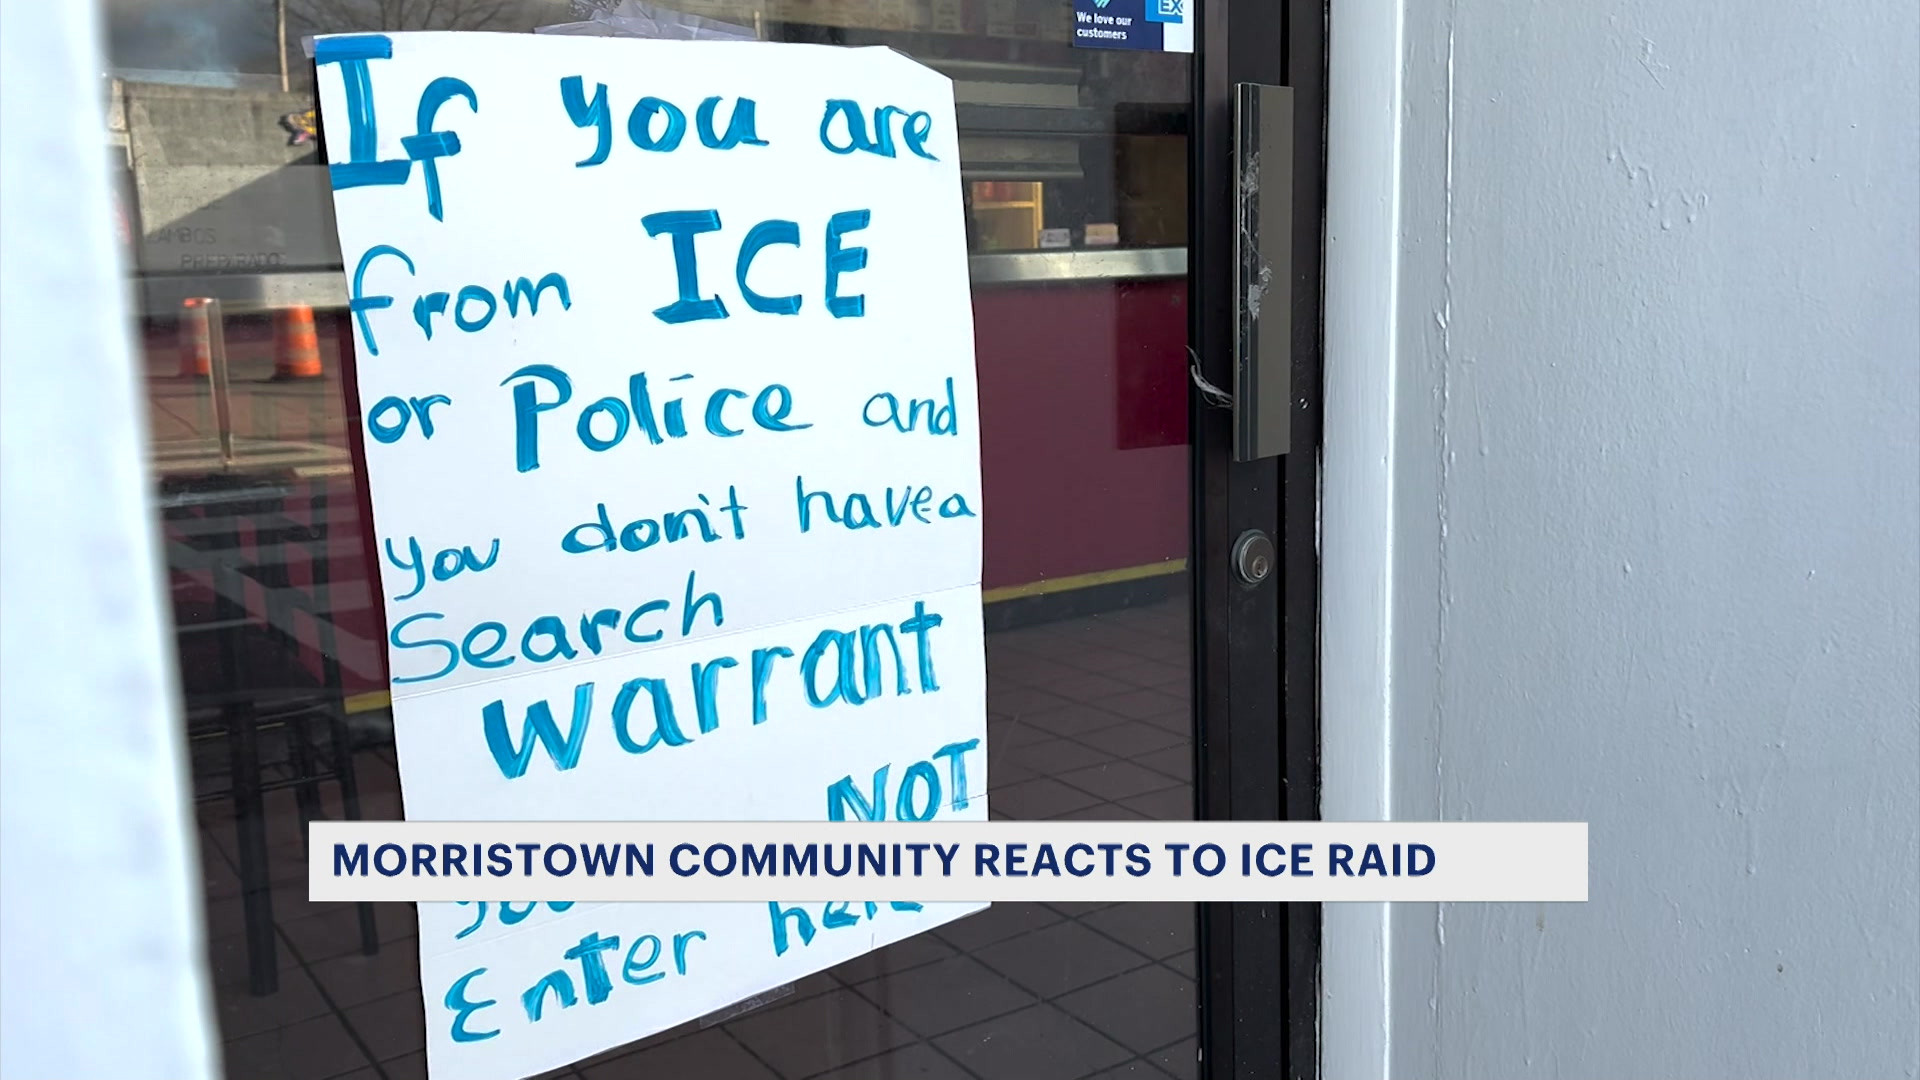 We love our
customers
If you are
from ICE
or Police and
you don't have a
Search
Warrant
NOT
MORRISTOWN COMMUNITY REACTS TO ICE RAID
Enter here